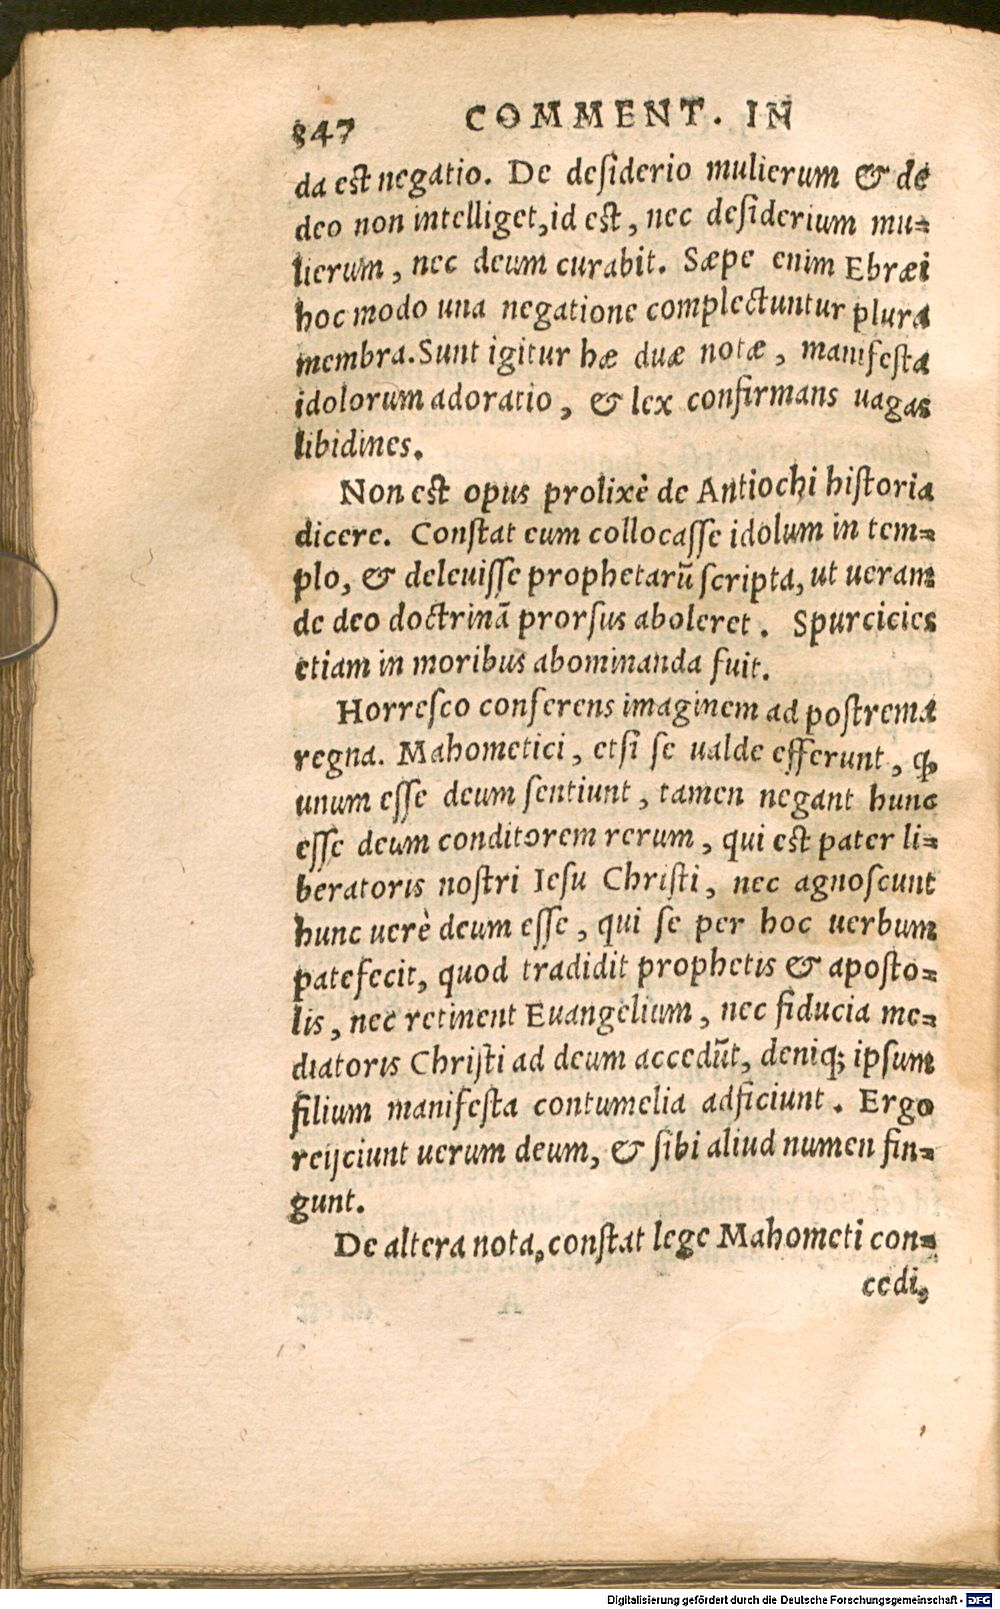 847 COMMENT. IN
da est negatio. De desiderio mulierum & de
deo non intelliget, id est, nec desiderium mu=
lierum, nec deum curabit. Sæpe enim Ebræi
hoc modo una negatione complectuntur plura
membra. Sunt igitur hæ duæ notæ, manifesta
idolorum adoratio, & lex confirmans uagas
libidines.
Non est opus prolixè de Antiochi historia
dicere. Constat eum collocasse idolum in tem=
plo, & deleuisse prophetarũ scripta, ut ueram
de deo doctrinã prorsus aboleret. Spurcicies
etiam in moribus abominanda fuit.
Horresco conferens imaginem ad postrema
regna. Mahometici, etsi se ualde efferunt, ꝙ
unum esse deum sentiunt, tamen negant hunc
esse deum conditorem rerum, qui est pater li=
beratoris nostri Iesu Christi, nec agnoscunt
hunc uerè deum esse, qui se per hoc uerbum
patefecit, quod tradidit prophetis & aposto=
lis, nec retinent Euangelium, nec fiducia me=
diatoris Christi ad deum accedũt, deniq; ipsum
filium manifesta contumelia adficiunt. Ergo
reijciunt uerum deum, & sibi aliud numen fin=
gunt.
De altera nota, constat lege Mahometi con=
cedi,
Digitalisierung gefördert durch die Deutsche Forschungsgemeinschaft - DFG